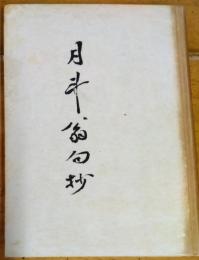 月斗翁句抄